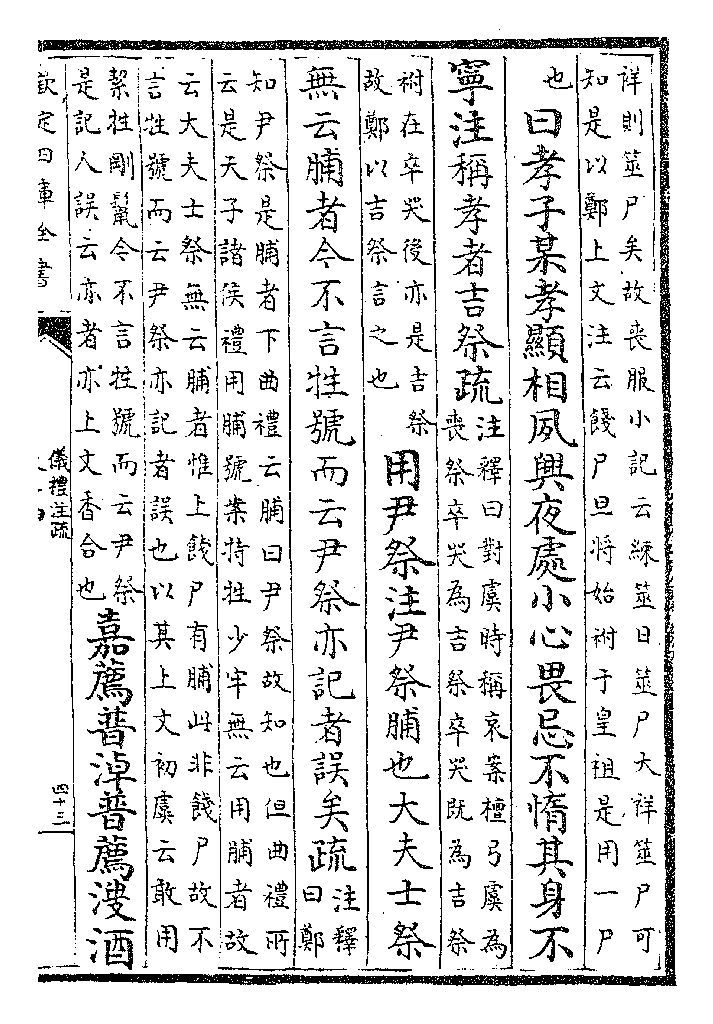 祥則筮尸矣故喪服小記云練筮日筮尸大祥筮尸可
知是以鄭上文注云餞尸旦將始祔于皇祖是用一尸
也曰孝子某孝顯相夙興夜處小心畏忌不惰其身不
寧注稱孝者吉祭疏
注釋曰對虞時稱哀案檀弓虞為
喪祭卒哭為吉祭卒哭既為吉祭
祔在卒哭後亦是吉祭
故鄭以吉祭言之也
用尹祭注尹祭脯也大夫士祭
無云脯者今不言牲號而云尹祭亦記者誤矣疏
注釋
曰鄭
知尹祭是脯者下曲禮云脯曰尹祭故知也但曲禮所
云是天子諸侯禮用脯號案特牲少牢無云用脯者故
云大夫士祭無云脯者惟上餞尸有脯此非餞尸故不
言牲號而云尹祭亦記者誤也以其上文初虞云敢用
絜牲剛鬣今不言牲號而云尹祭
是記人誤云亦者亦上文香合也
嘉薦普淖普薦溲酒
欽定四庫全書
儀禮注疏
四十三